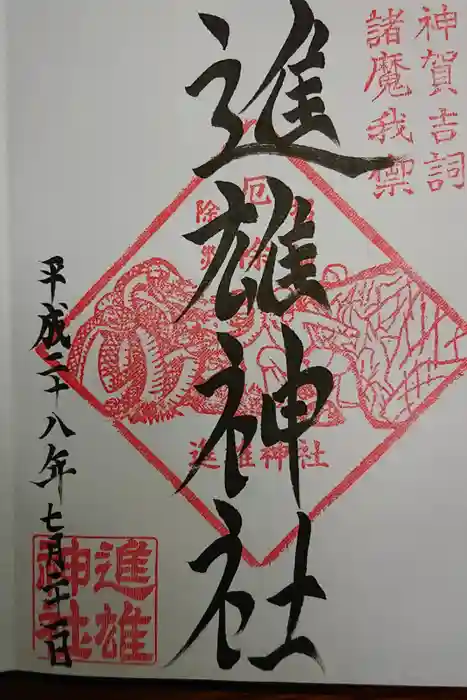 神賀吉詞
諸魔我禦
進雄神社
厄
除
進雄神社
進雄
神社
平成二十八年七月二十一日